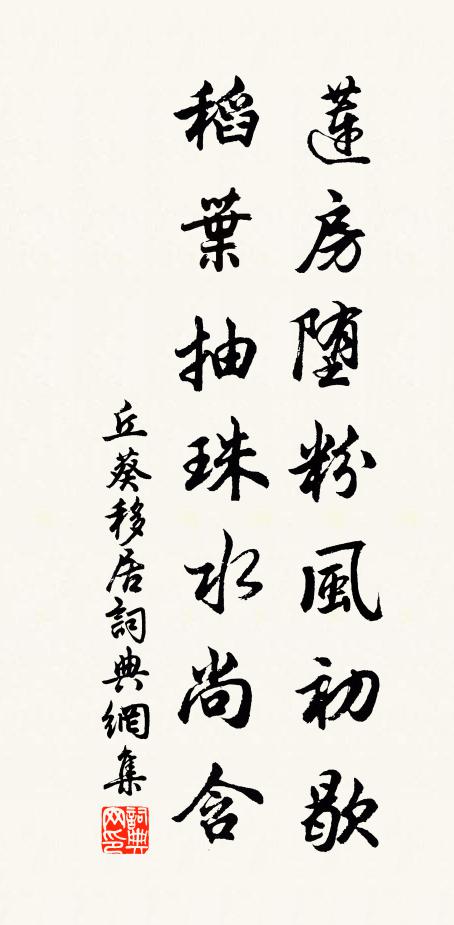 蓮房堕粉風初歇
稻葉抽珠水尚含
丘葵移居詞典網集
詞典网印